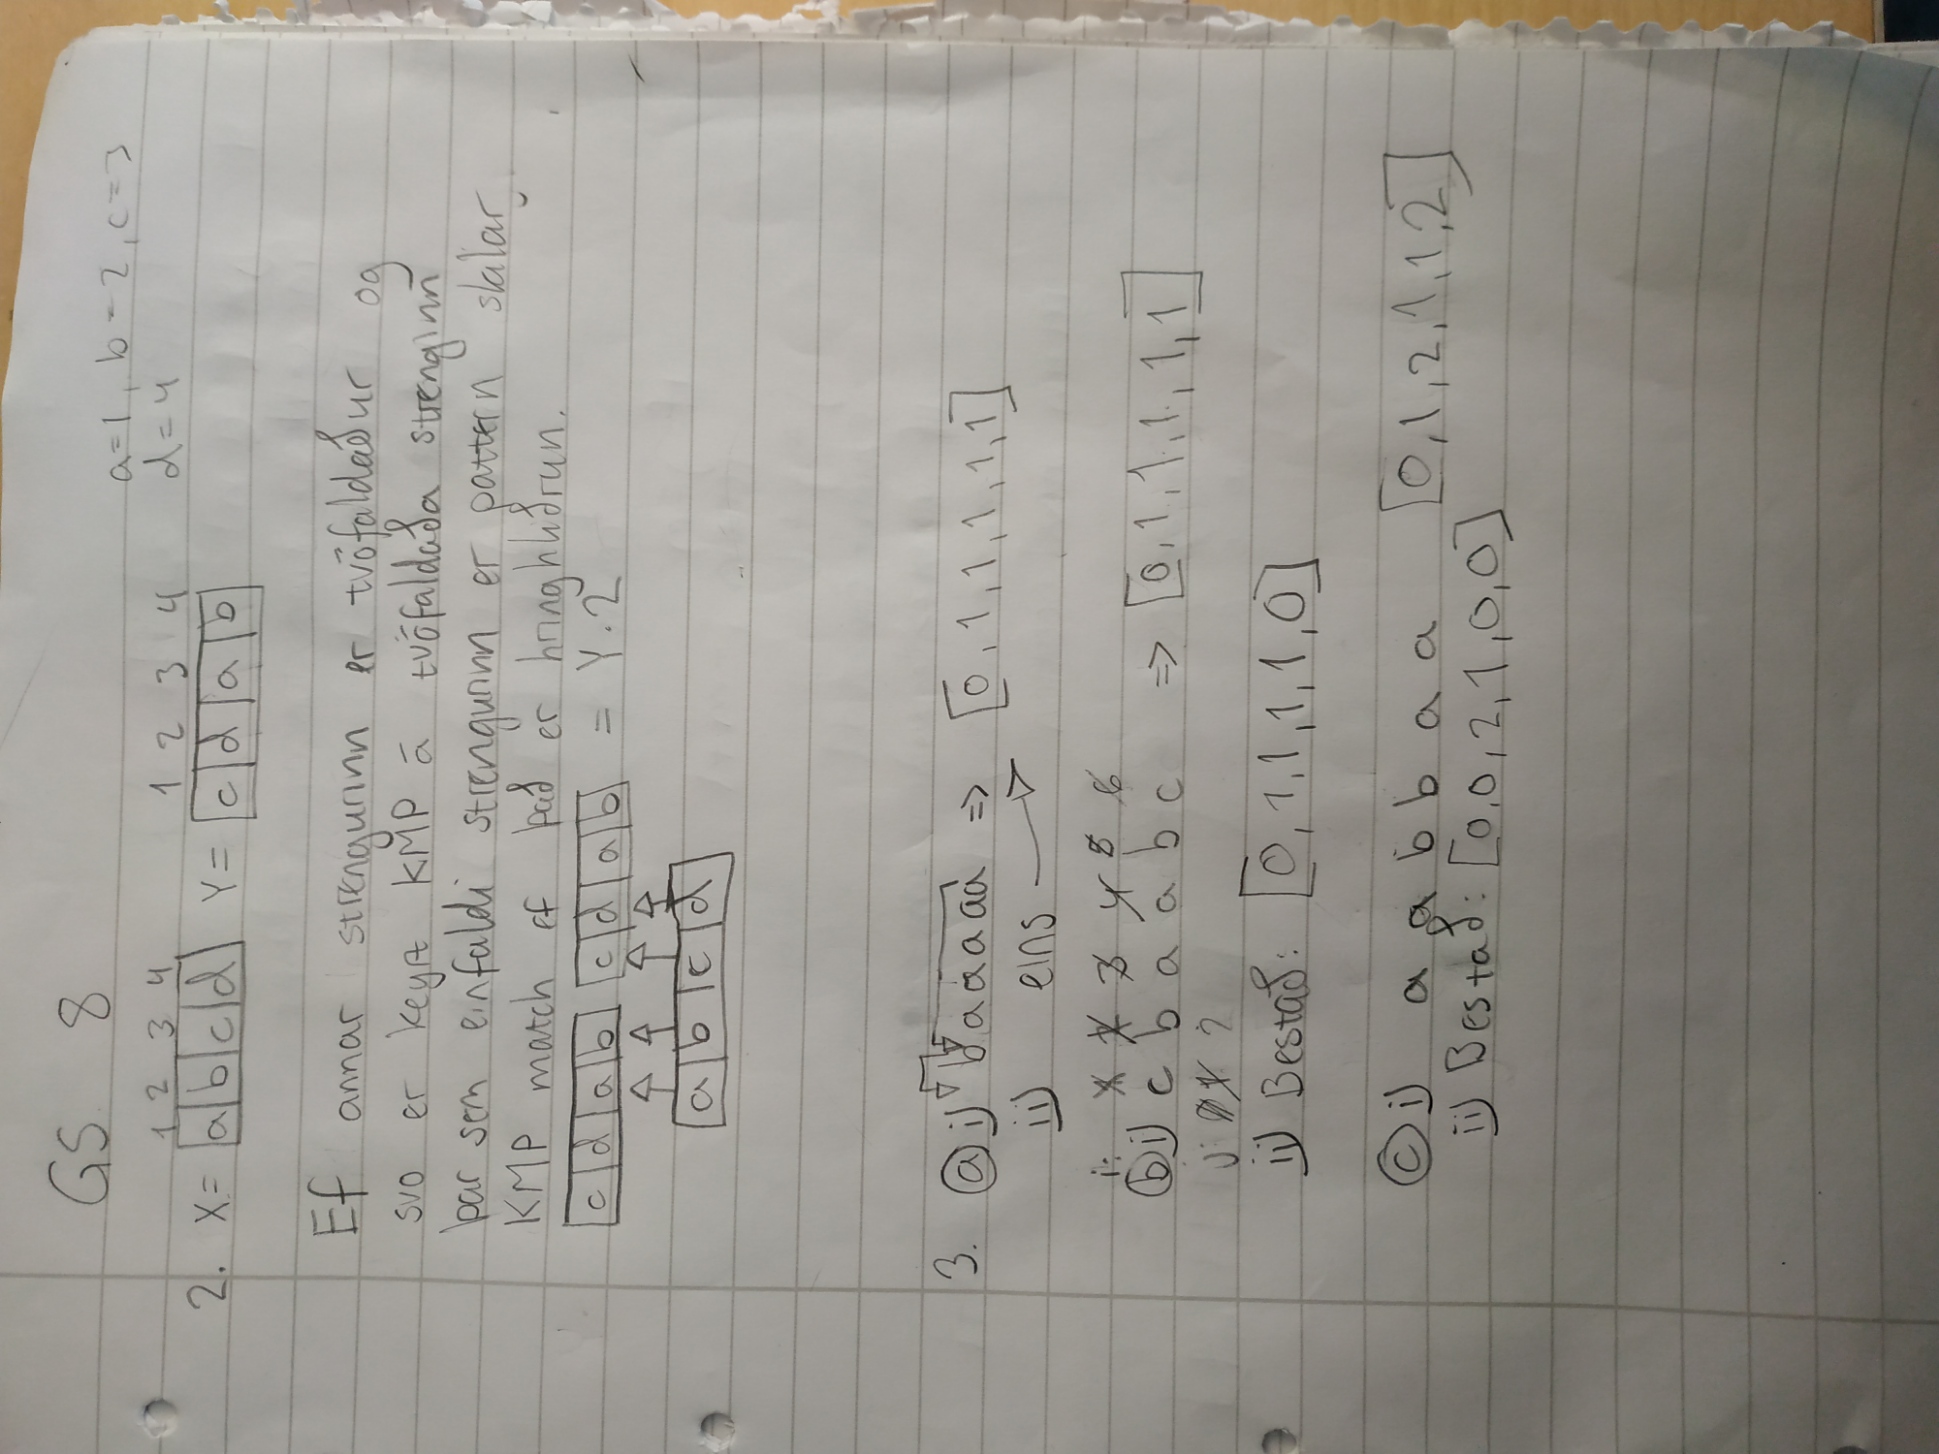 GS 8
a=1, b=2, c=3
d=4
1 2 3 4 1 2 3 4
2. X= a b c d Y= c d a b
Ef annar strengurinn er tvöfaldaður og
svo er keyrt KMP á tvöfaldaða strenginn
þar sem einfaldi strengurinn er pattern skilar
KMP match ef það er hringhliðrun.
c d a b c d a b = Y·2
a b c d
3. a i) b a a a a a => [0, 1, 1, 1, 1, 1]
ii) eins
i: 1 2 3 4 5 6
b i) c b a a b c => [0, 1, 1, 1, 1, 1]
j: 0 1 2
ii) Bestað: [0, 1, 1, 1, 1, 0]
c i) a a b b a a [0, 1, 2, 1, 1, 2]
ii) Bestað: [0, 0, 2, 1, 0, 0]